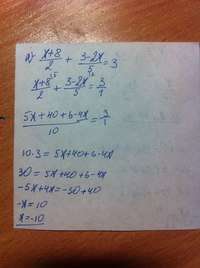 а) x+8/2 + 3-2x/5 = 3
x+8⁵/2 + 3-2x²/5 = 3/1
5x+40+6-4x/10 = 3/1
10·3 = 5x+40+6-4x
30 = 5x+40+6-4x
-5x+4x = -30+40
-x = 10
x = -10